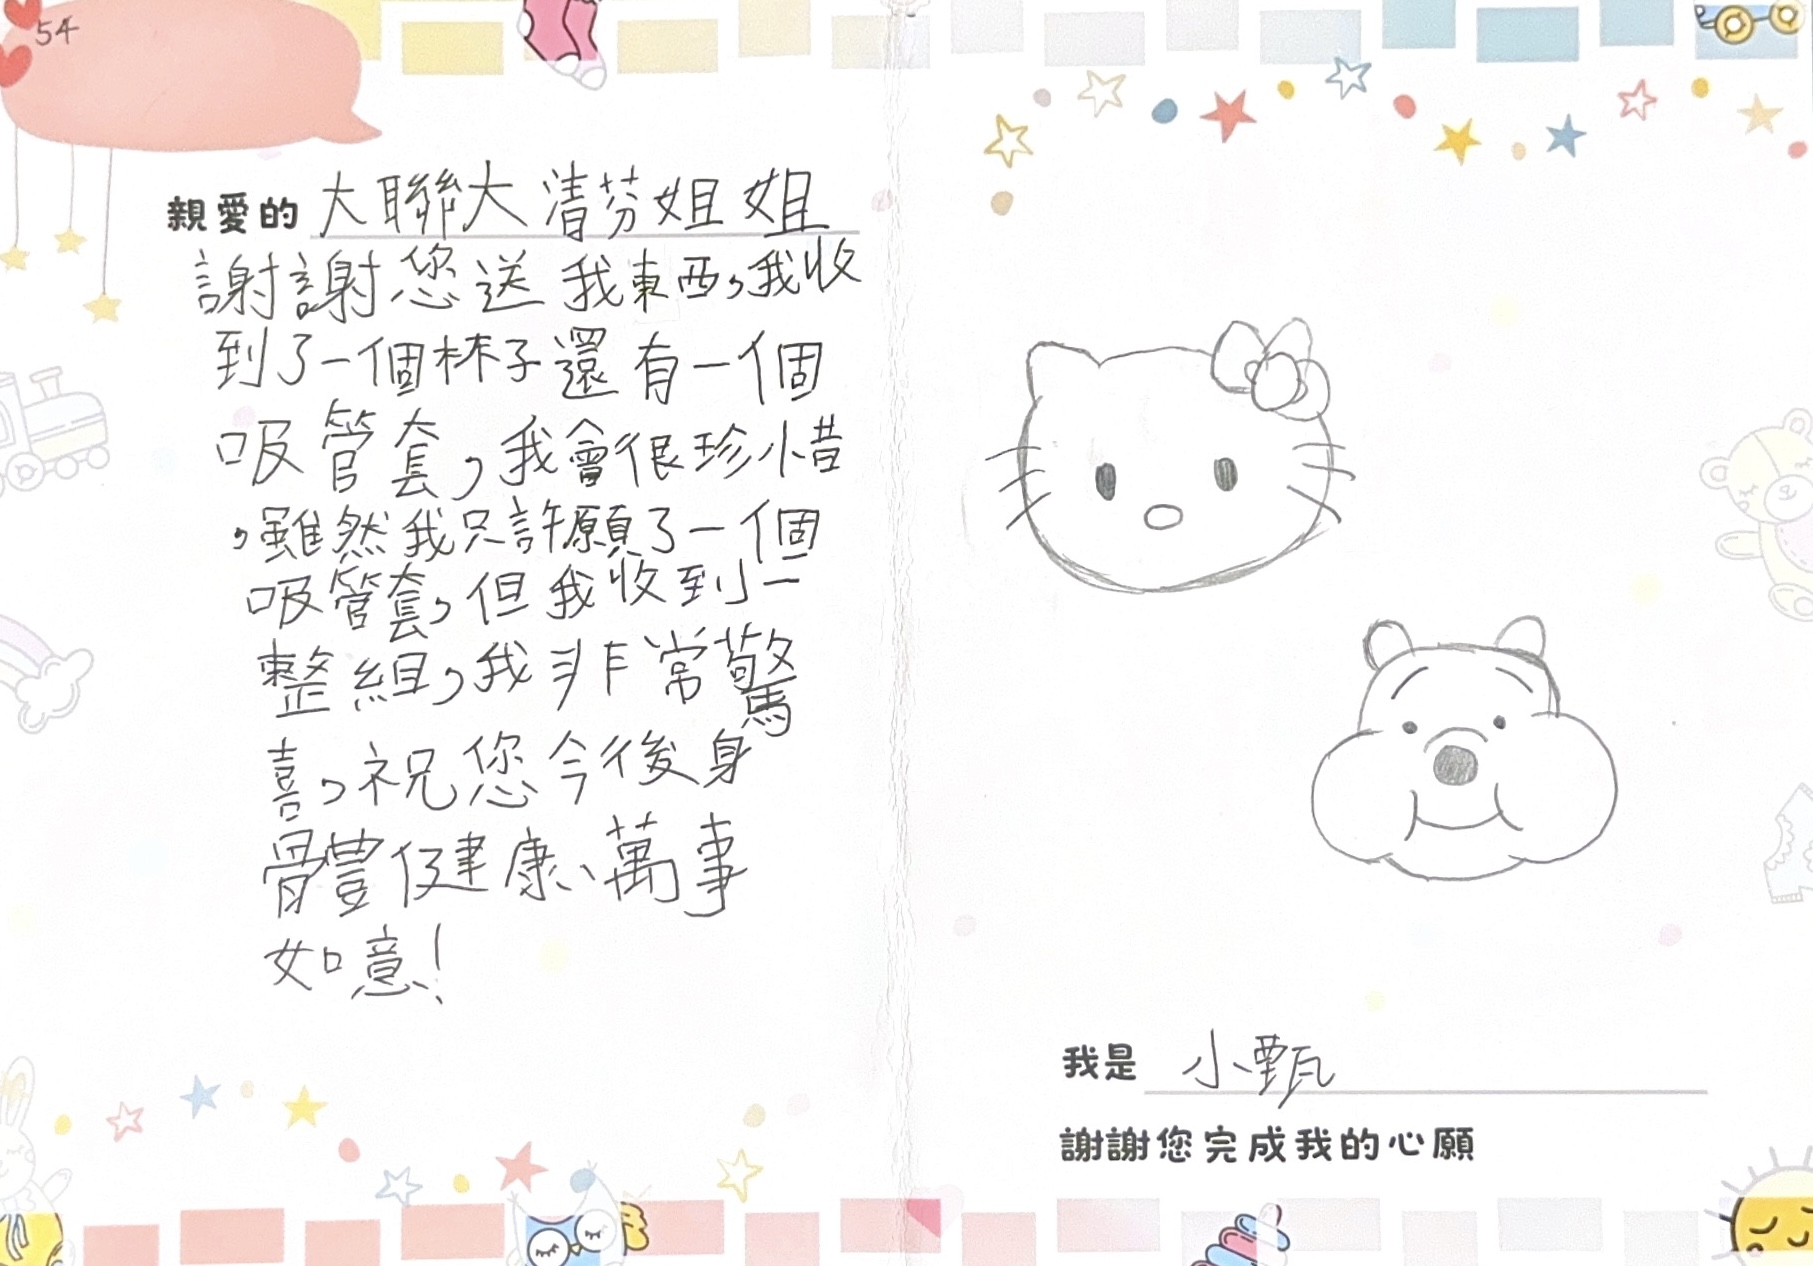 54
親愛的 大聯大清芬姐姐
謝謝您送我東西,我收
到了一個杯子還有一個
吸管套,我會很珍惜
,雖然我只許願了一個
吸管套,但我收到一
整組,我非常驚
喜,祝您今後身
體健康、萬事
如意!
我是 小甄
謝謝您完成我的心願